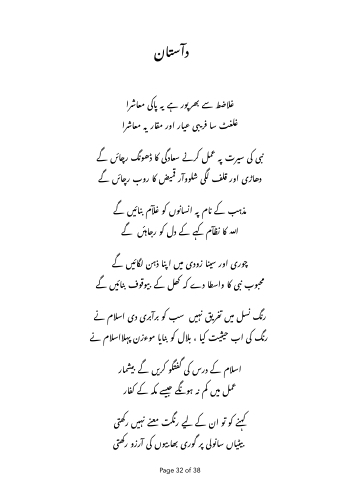 دآستان
غلاضط سے بھرپور ہے یہ پاکی معاشرا
غلفٹ سا فریبی عیار اور مقار یہ معاشرا
نبی کی سیرت پہ عمل کرنے سعادگی کا ڈھونگ رچائں گے
دھاڑی اور قلف لگی شلووآر قمیض کا روپ رچائں گے
مذہب کے نام پہ انسانوں کو غلآم بنائیں گے
اللہ کا نظآم کہے کے دل کو رجاہئں گے
چوری اور سینا زودی میں اپنا ذہن لگائیں گے
محبوب نبی کا واسطا دے کہ کھل کے بیوقوف بنائیں گے
رنگ نسل میں تفریق نہیں سب کو برآبری دی اسلام نے
رنگ کی اب حیثیت کیا ، بلال کو بنایا موءزن پہلااسلام نے
اسلام کے درس کی گفتگو کریں گے بیشمار
عمل میں کم نہ ہونگے جیسے مکہ کے کفار
کہنے کو تو ان کے لیے رنگت معنے نہیں رکھتی
بیٹیاں سانولی پر گوری بھابیوں کی آرزو رکھتی
Page 32 of 38